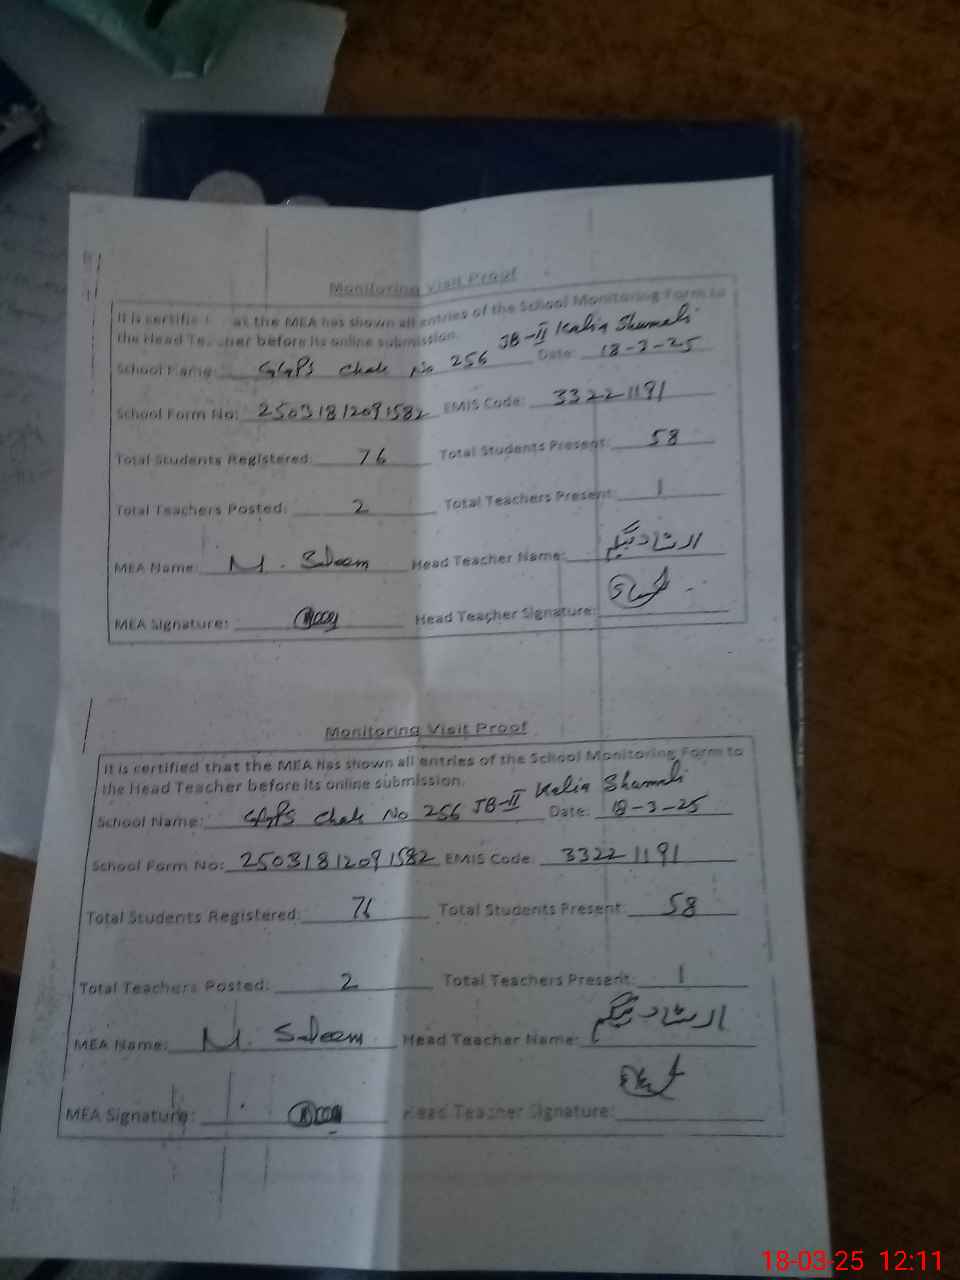 Monitoring Visit Proof
It is certifie at the MEA has shown all entries of the School Monitoring Form to
the Head Te cher before its online submission.
School Name: GGPS Chak No 256 JB-II Kalia Shumali Date: 18-3-25
School Form No: 25031812091582 EMIS Code: 33221191
Total Students Registered: 76 Total Students Present: 58
Total Teachers Posted: 2 Total Teachers Present: 1
MEA Name: M. Saleem Head Teacher Name: ارشاد بیگم
MEA Signature: Head Teacher Signature:
Monitoring Visit Proof
It is certified that the MEA has shown all entries of the School Monitoring Form to
the Head Teacher before its online submission.
School Name: GGPS Chak No 256 JB-II Kalia Shumali Date: 18-3-25
School Form No: 25031812091582 EMIS Code: 33221191
Total Students Registered: 76 Total Students Present: 58
Total Teachers Posted: 2 Total Teachers Present: 1
MEA Name: M. Saleem Head Teacher Name: ارشاد بیگم
MEA Signature: Head Teacher Signature:
18-03-25 12:11